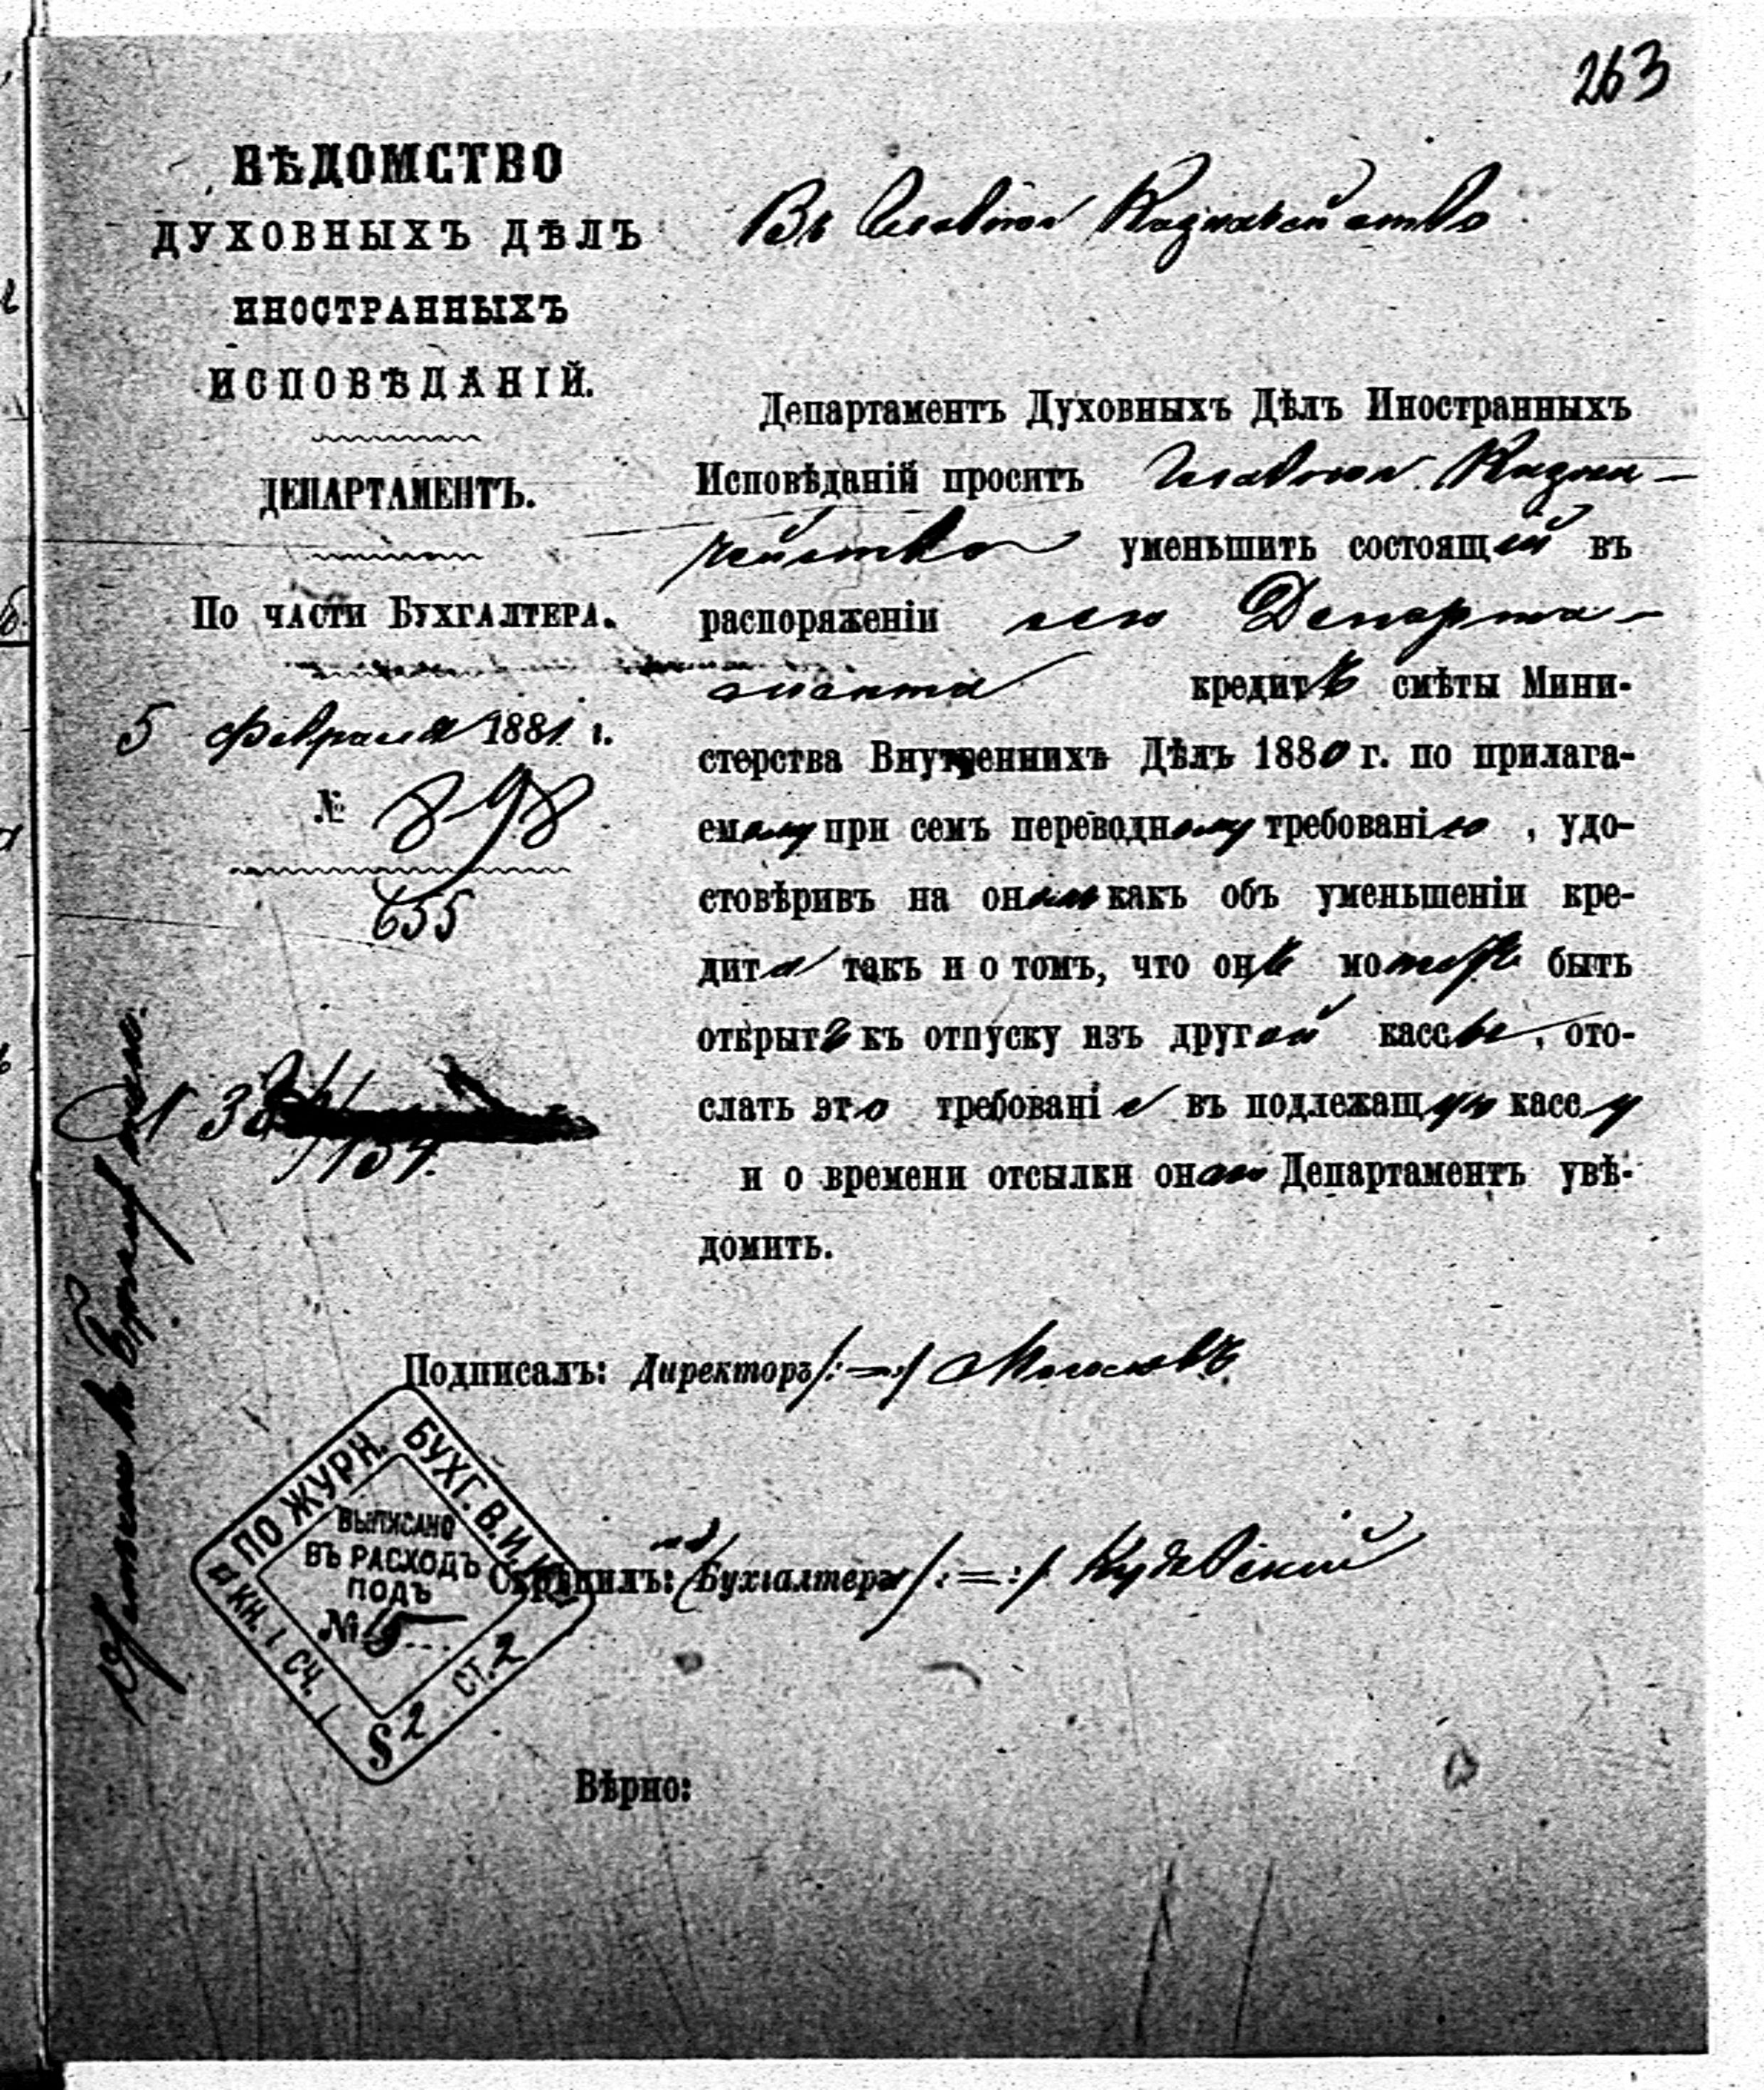 263
ВѢДОМСТВО
ДУХОВНЫХЪ ДѢЛЪ
ИНОСТРАННЫХЪ
ИСПОВѢДАНІЙ.
ДЕПАРТАМЕНТЪ.
По части Бухгалтера.
5 февраля 1881 г.
№ 898
655
Въ Главное Казначейство
Департаментъ Духовныхъ Дѣлъ Иностранныхъ
Исповѣданій проситъ Главное Казна-
чейство уменьшить состоящій въ
распоряженіи сего Департа-
мента кредитъ смѣты Мини-
стерства Внутреннихъ Дѣлъ 1880 г. по прилага-
емому при семъ переводному требованію, удо-
стовѣривъ на ономъ какъ объ уменьшеніи кре-
дита такъ и о томъ, что онъ можетъ быть
открытъ къ отпуску изъ другой кассы, ото-
слать это требованіе въ подлежащую кассу
и о времени отсылки онаго Департаментъ увѣ-
домить.
Подписалъ: Директоръ /:=:/ Мосоловъ
Скрѣпилъ: Бухгалтеръ /:=:/
ПО ЖУРН. БУХГ. В. И. К.
КН. 1 СЧ. 1 § 2 СТ. 2
ВЫПИСАНО
ВЪ РАСХОДЪ
ПОДЪ
№ 15
Вѣрно: